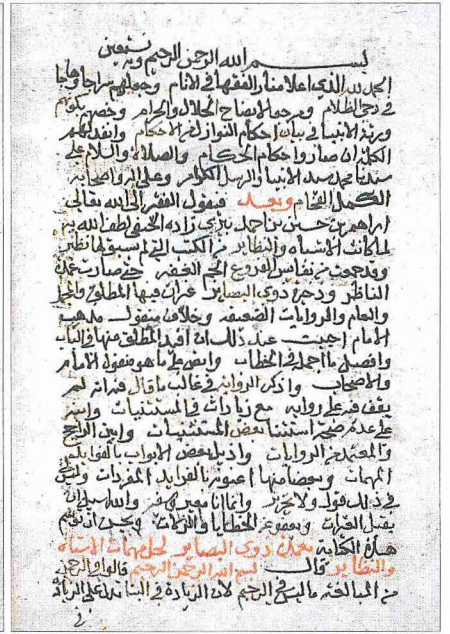 بسم الله الرحمن الرحيم وبه نستعين
الحمد لله الذي اعلا منار الفقها في الانام وجعلهم سراجا وهاجا
في دجى الظلام ومرجعا لايضاح الحلال والحرام وخصهم بكونهم
ورثة الانبيا في بيان احكام النوازل الاحكام وانقذ لهم
الكلمة ان صاروا حكام الحكام والصلاة والسلام على
سيدنا محمد سيد الانبيا والرسل الكرام وعلى اله واصحابه
الكمل الفخام وبعد فيقول الفقير الى الله تعالى
ابراهيم بن حسين بن احمد بيري زاده الحنفي لطف الله به
لما كانت الاشباه والنظاير من الكتب التي لم يسبق لها نظير
وقد جمعت من نفايس الفروع الجم الغفير حتى صارت عمدة
الناظر وذخيرة ذوي البصاير غير ان فيها المطلق
والعام والروايات الضعيفه وخلاف منقول مذهب
الامام احببت عند ذلك ان اقيد المطلق منها في الباب
وافصل ما اجمله في الخطاب وانص على ما هو منقول الامام
والاصحاب واذكر الرواية في غالب ما قال فيه انه لم
يقف فيه على روايه مع زيادات في المستثنيات وانبه
على عدم صحة استثنا بعض المستثنيات وابين الراجح
والمعتمد من الروايات واذيل بعض الابواب بالفوايد
المهمات وبعضا منها اعنونه بالفرايد المفردات وليس لي
في ذلك قول ولا تحرير وانما انا معبر وسفير والله اسال ان
يقبل العثرات ويعفو عن الخطايا والزلات ويحسن ان توسم
هذه الكتابة بعمدة ذوي البصاير لحل مهمات الاشباه
والنظاير قال بسم الله الرحمن الرحيم قالوا في الرحمن
من المبالغة ما ليس في الرحيم لان الزيادة في البنا تدل على الزيادة